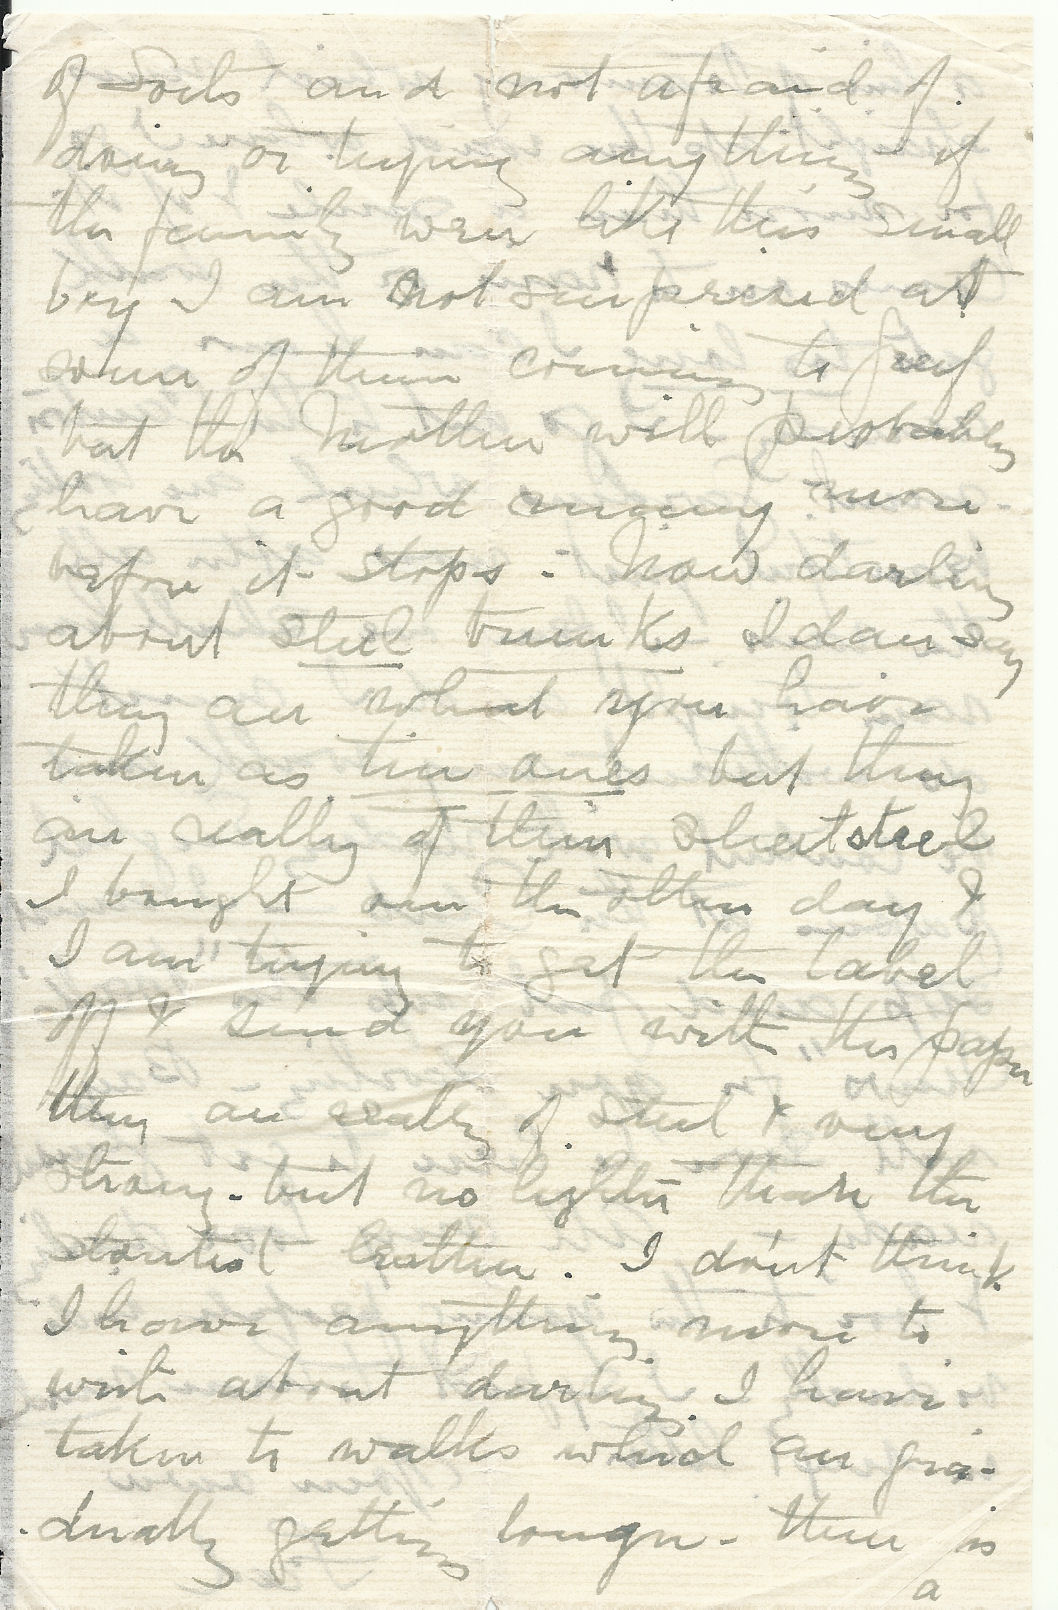 of sorts and not afraid of
doing or trying anything - if
the family were like this small
boy I am not surprised at
some of them coming to grief
but the Mother will probably
have a good many more
before it stops - Now darling
about steel trunks I daresay
they are what you have
taken as tin ones but they
are really of thin sheet steel
I bought one the other day &
I am trying to get the label
off & send you with the paper
they are really of steel & very
strong - but no lighter than the
leather. I don't think
I have anything more to
write about darling. I have
taken to walks which are gra-
dually getting longer - there is
a